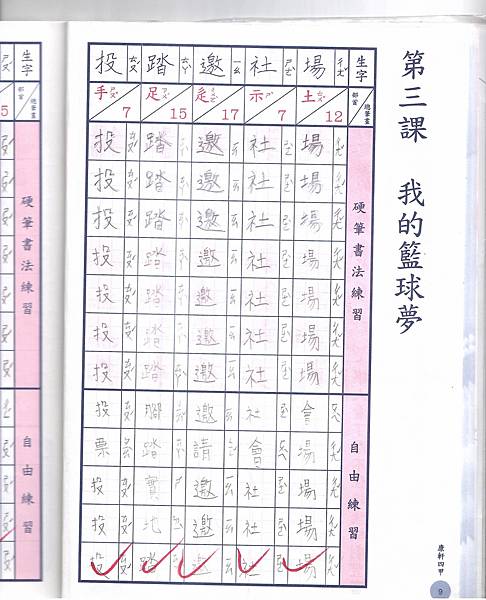 第三課 我的籃球夢
生字 部首 總筆畫 硬筆書法練習 自由練習
場 ㄔㄤˊ 土 ㄊㄨˇ 12 場 場 場 場 場 場 場 會 場 場 場 場
社 ㄕㄜˋ 示 ㄕˋ 7 社 社 社 社 社 社 社 社 會 社 社 社
邀 ㄧㄠ 辵 17 邀 邀 邀 邀 邀 邀 邀 邀 請 邀 邀 邀
踏 ㄊㄚˋ 足 ㄗㄨˊ 15 踏 踏 踏 踏 踏 踏 踏 腳 踏 實 地 踏
投 ㄊㄡˊ 手 ㄕㄡˇ 7 投 投 投 投 投 投 投 投 票 投 投 投
康軒四甲
9
生字 部首 總筆畫 硬筆書法練習 自由練習
5